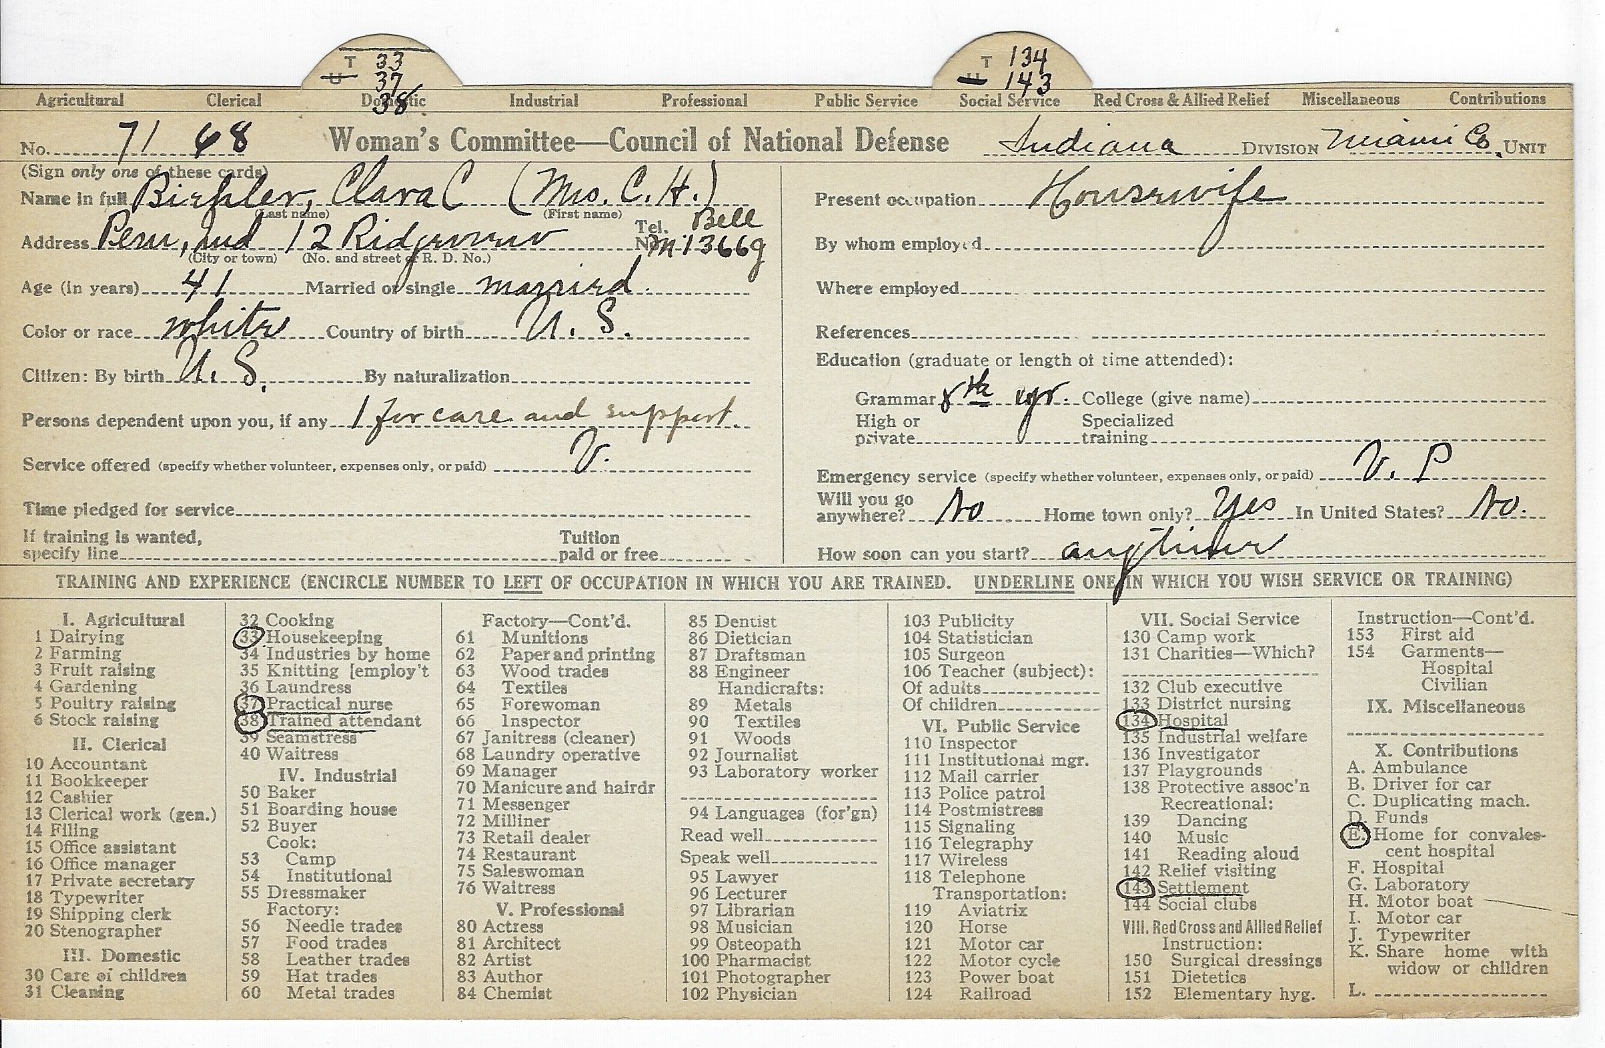 T 33
U 37
38
T 134
U 143
Agricultural Clerical Domestic Industrial Professional Public Service Social Service Red Cross & Allied Relief Miscellaneous Contributions
No. 71 68 Woman's Committee—Council of National Defense Indiana DIVISION Miami Co. UNIT
(Sign only one of these cards)
Name in full Clara C (Mrs. C. H.)
(Last name) (First name)
Address Peru, Ind 12 Ridgeview Tel. No. Bell
(City or town) (No. and street or R. D. No.)
Age (in years) 41 Married or single married.
Color or race white Country of birth U. S.
Citizen: By birth U. S. By naturalization
Persons dependent upon you, if any 1 for care and support.
Service offered (specify whether volunteer, expenses only, or paid) V.
Time pledged for service
If training is wanted, specify line
Tuition paid or free
Present occupation Housewife
By whom employed
Where employed
References
Education (graduate or length of time attended):
Grammar 8th yr. College (give name)
High or private Specialized training
Emergency service (specify whether volunteer, expenses only, or paid) V. P
Will you go anywhere? No Home town only? Yes In United States? No.
How soon can you start? anytime
TRAINING AND EXPERIENCE (ENCIRCLE NUMBER TO LEFT OF OCCUPATION IN WHICH YOU ARE TRAINED. UNDERLINE ONE IN WHICH YOU WISH SERVICE OR TRAINING)
I. Agricultural
1 Dairying
2 Farming
3 Fruit raising
4 Gardening
5 Poultry raising
6 Stock raising
II. Clerical
10 Accountant
11 Bookkeeper
12 Cashier
13 Clerical work (gen.)
14 Filing
15 Office assistant
16 Office manager
17 Private secretary
18 Typewriter
19 Shipping clerk
20 Stenographer
III. Domestic
30 Care of children
31 Cleaning
32 Cooking
33 Housekeeping
34 Industries by home
35 Knitting [employ't
36 Laundress
37 Practical nurse
38 Trained attendant
39 Seamstress
40 Waitress
IV. Industrial
50 Baker
51 Boarding house
52 Buyer
Cook:
53 Camp
54 Institutional
55 Dressmaker
Factory:
56 Needle trades
57 Food trades
58 Leather trades
59 Hat trades
60 Metal trades
Factory—Cont'd.
61 Munitions
62 Paper and printing
63 Wood trades
64 Textiles
65 Forewoman
66 Inspector
67 Janitress (cleaner)
68 Laundry operative
69 Manager
70 Manicure and hairdr
71 Messenger
72 Milliner
73 Retail dealer
74 Restaurant
75 Saleswoman
76 Waitress
V. Professional
80 Actress
81 Architect
82 Artist
83 Author
84 Chemist
85 Dentist
86 Dietician
87 Draftsman
88 Engineer
Handicrafts:
89 Metals
90 Textiles
91 Woods
92 Journalist
93 Laboratory worker
94 Languages (for'gn)
Read well
Speak well
95 Lawyer
96 Lecturer
97 Librarian
98 Musician
99 Osteopath
100 Pharmacist
101 Photographer
102 Physician
103 Publicity
104 Statistician
105 Surgeon
106 Teacher (subject):
Of adults
Of children
VI. Public Service
110 Inspector
111 Institutional mgr.
112 Mail carrier
113 Police patrol
114 Postmistress
115 Signaling
116 Telegraphy
117 Wireless
118 Telephone
Transportation:
119 Aviatrix
120 Horse
121 Motor car
122 Motor cycle
123 Power boat
124 Railroad
VII. Social Service
130 Camp work
131 Charities—Which?
132 Club executive
133 District nursing
134 Hospital
135 Industrial welfare
136 Investigator
137 Playgrounds
138 Protective assoc'n
Recreational:
139 Dancing
140 Music
141 Reading aloud
142 Relief visiting
143 Settlement
144 Social clubs
VIII. Red Cross and Allied Relief
Instruction:
150 Surgical dressings
151 Dietetics
152 Elementary hyg.
Instruction—Cont'd.
153 First aid
154 Garments—
Hospital
Civilian
IX. Miscellaneous
X. Contributions
A. Ambulance
B. Driver for car
C. Duplicating mach.
D. Funds
E. Home for convales-
cent hospital
F. Hospital
G. Laboratory
H. Motor boat
I. Motor car
J. Typewriter
K. Share home with
widow or children
L.